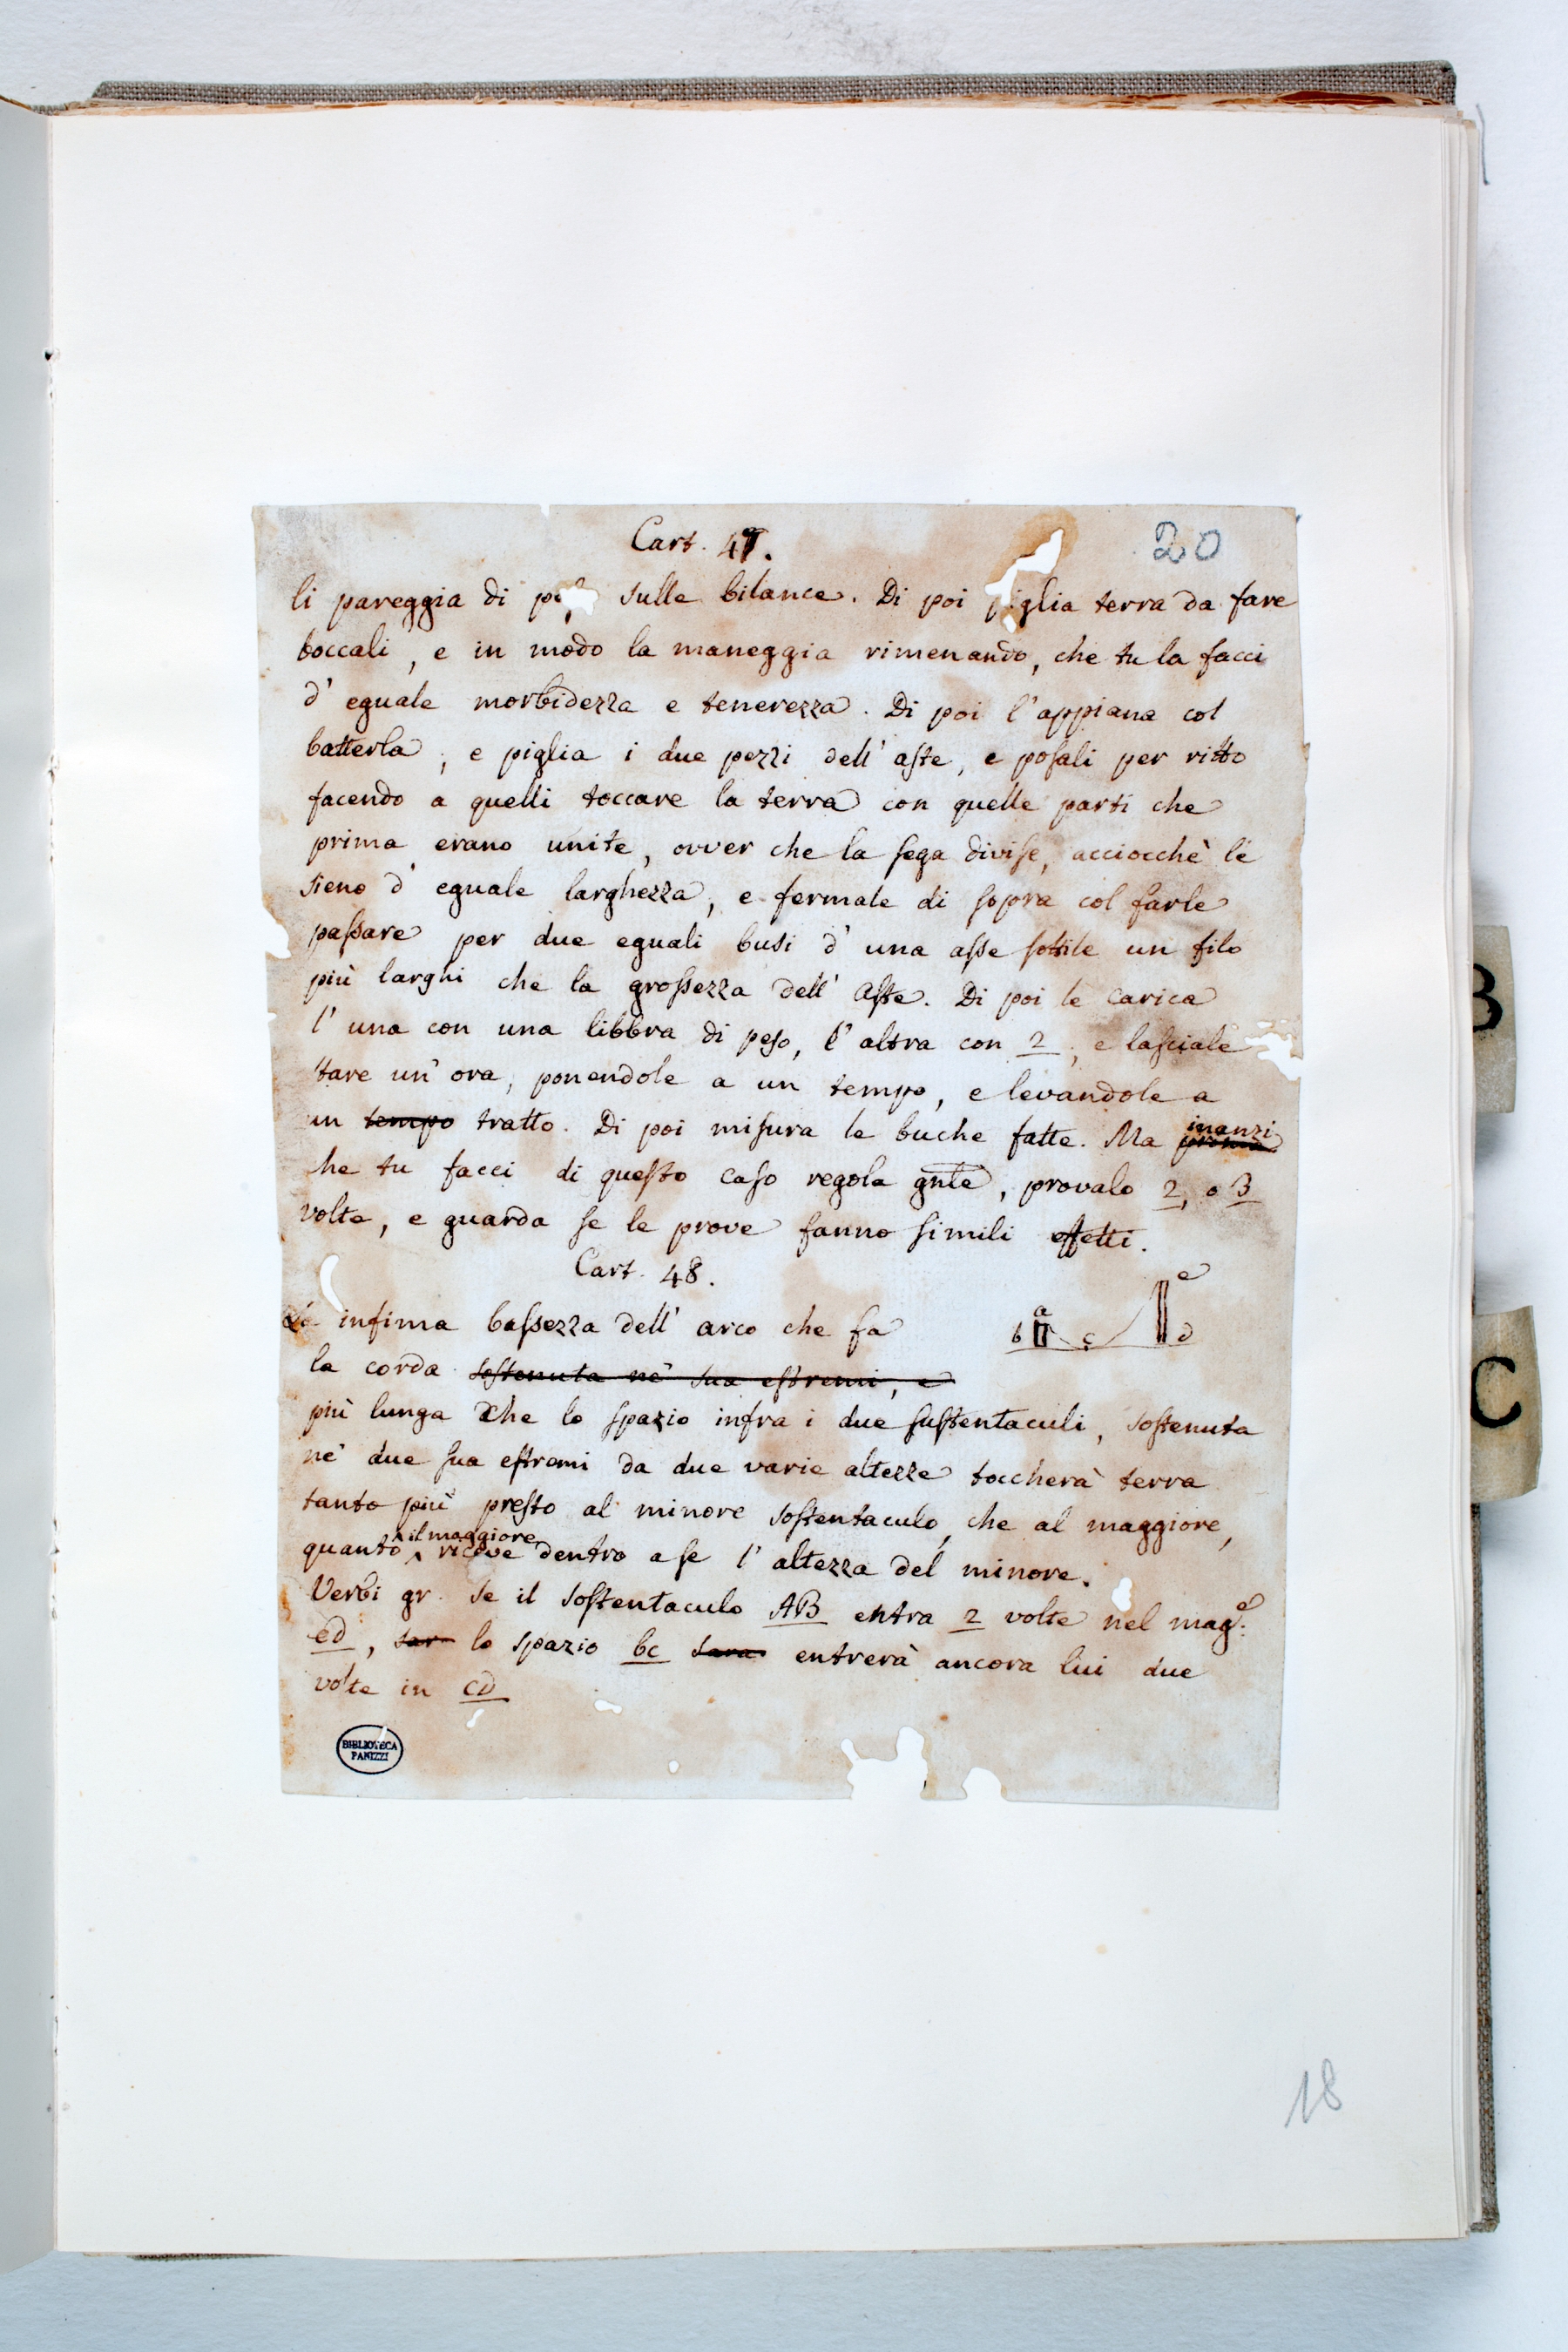 Cart. 47.
20
li pareggia di sulle bilance. Di poi piglia terra da fare
boccali, e in modo la maneggia rimenando, che tu la facci
d' eguale morbidezza e tenerezza. Di poi l'appiana col
batterla, e piglia i due pezzi dell' aste, e posali per ritto
facendo a quelli toccare la terra con quelle parti che
prima erano unite, ovver che la sega divise, acciocchè le
sieno d' eguale larghezza, e fermale di sopra col farle
passare per due eguali busi d' una asse sottile un filo
più larghi che la grossezza dell' Aste. Di poi le carica
l' una con una libbra di peso, l' altra con 2, e lasciale
stare un' ora, ponendole a un tempo, e levandole a
un tempo tratto. Di poi misura le buche fatte. Ma prima inanzi
che tu facci di questo caso regola gnle, provalo 2, o 3
volte, e guarda se le prove fanno simili effetti.
Cart. 48.
La infima bassezza dell' arco che fa
la corda sostenuta ne' sua estremi, e
più lunga che lo spazio infra i due sustentaculi, sostenuta
ne' due sua estremi da due varie altezze toccherà terra
tanto più presto al minore sostentaculo, che al maggiore,
quanto il maggiore riceve dentro a se l' altezza del minore.
Verbi gr. se il sostentaculo AB entra 2 volte nel mag.e
ed, sar lo spazio bc sara entrerà ancora lui due
volte in cd
a
b
c
d
e
BIBLIOTECA
PANIZZI
18
B
C